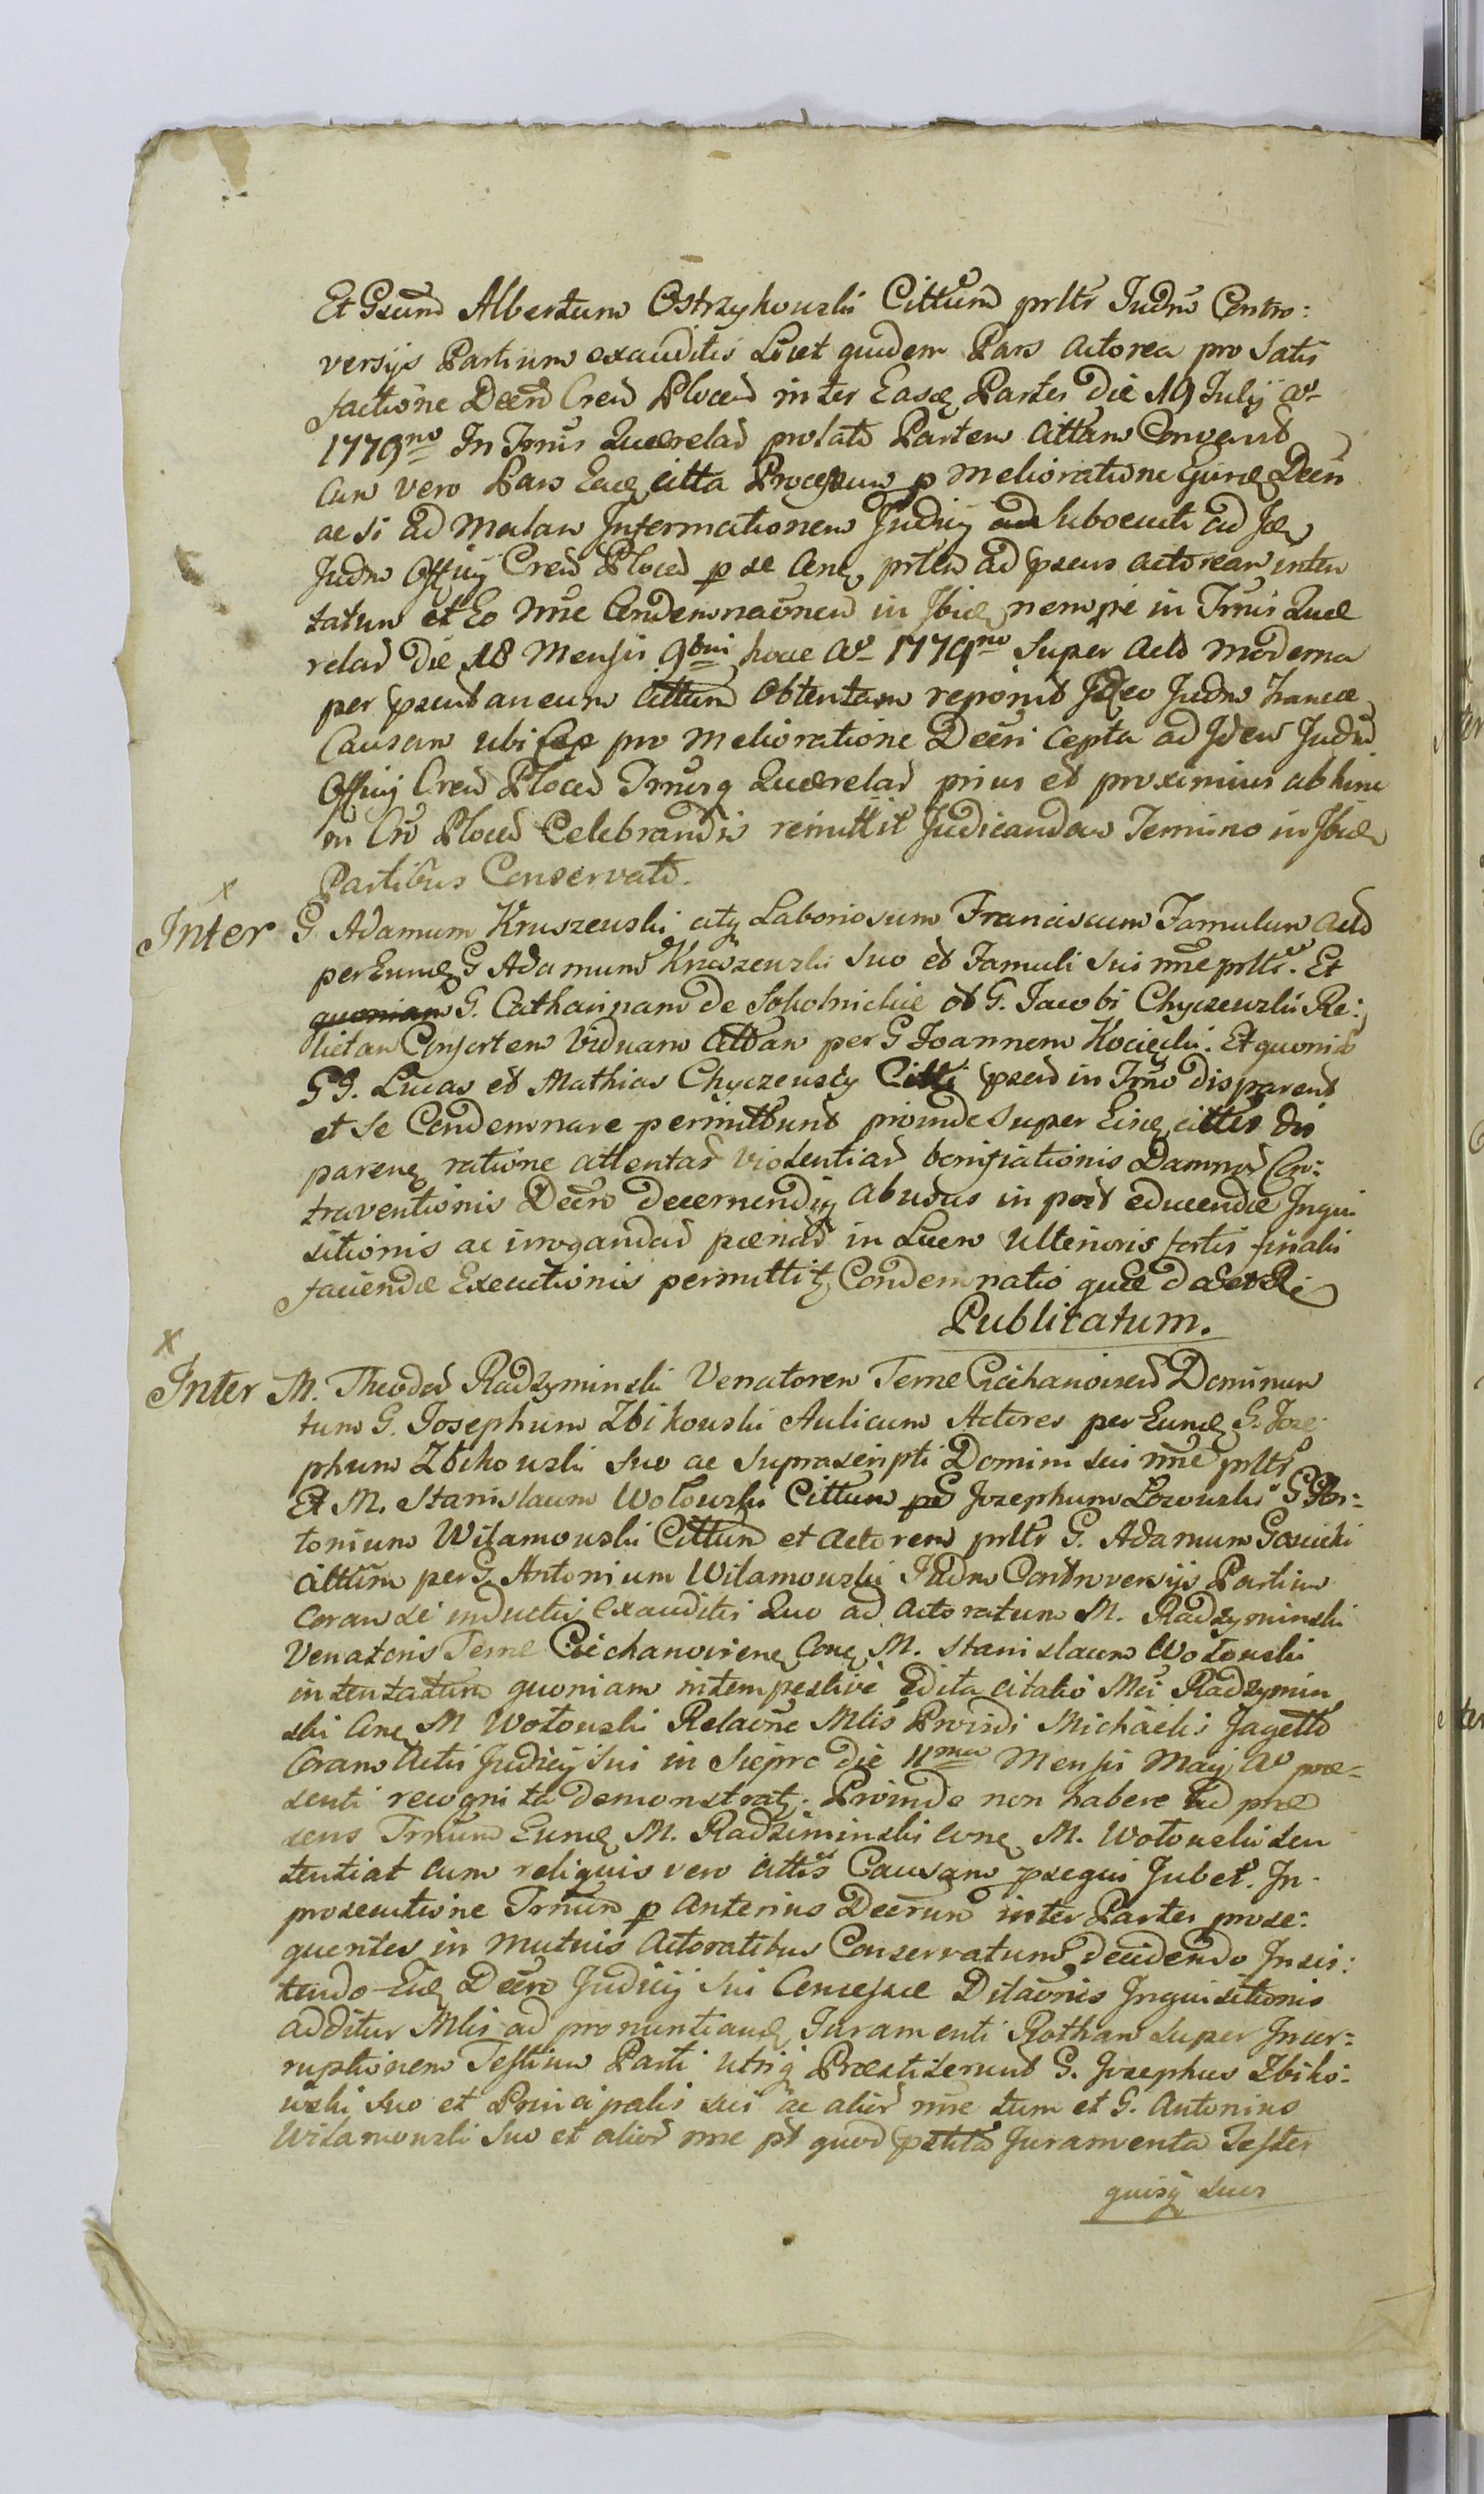 Et Gsum Albertum Ostrzykowski Cittum prltr Judm Contro:
versijs Partium exauditis Licet quidem Pars actorea pro Satis
factione Decr Cren Plocen inter Easq Partes die 19 Julij ao
1779no In Trnis Querelar prolato Partem Cittam Convenit
Cum vero Pars Eaq citta Processum p melioratione Ejusq Decr
ac si ad malam Informationem Judicij ad subsecuti ad Id
Judm Officij Cren Plocen p se Cnq prten ad psens actoream inten
tatum et Eo nne Condemnaonem in Ibiq nempe in Trnis Que
relar die 18 Mensis 9bris hocce Ao 1779no Super Acto moderna
per psentaneum Cittum Obtentam reponit Ideo Judm hancce
Causam ubi Cap pro Melioratione Decri cepta ad Idem Judm
Officij Cren Plocen Trnisq Querelar prius et proximius abhinc
in Crō Plocen Celebrandis remittit Judicandam Termino in Ibiq
Partibus Conservato.
x
Inter G Adamum Kruszewski atq Laboriosum Franciscum Famulum Acto
per Eumq G Adamum Kruszewski Suo et Famuli Sui nne prltr. Et
quoniam G. Catharinam de Sokolnickie ol G. Jacobi Chyczewski Re:
lictam Consortem Viduam Cittam per G Joannem Kocięcki. Et quonia
GG. Lucas et Mathias Chyczewscy Citti psen in Trno disparent
et se Condemnare permittunt proinde super Eisq cittis dis
parenq ratione attentar Violentiar bonifiationis Damnor Con:
traventionis Decro decernendiq abusus in post educendae Inqui
sitionis ac irrogandar paenar in Lucro Ulterioris fortis finalis
faciendae Executionis permittitq Condemnatio quae datet R
Publicatum.
x
Inter M. Theodor Radzyminski Venatorem Terrae Ciechanovien Dominum
tum G. Josephum Zbikowski Aulicum Actores per Eumq G. Jose
phum Zbikowski Suo ac Suprascripti Domini sui nne prltr
Et M. Stanislaum Wołowski Cittum p G Josephum Łozowski G An:
tonium Wilamowski Cittum et Actorem prltr G. Adamum Gosicki
Cittum per G. Antonium Wilamowski Judm Controversijs Partium
Coram se inductis Exauditis Quo ad Actoratum M. Radzyminski
Venatoris Terrae Ciechanovienq Cnq M. Stanislaum Wołowski
intentatum quoniam intempestive Edita citatio Mci Radzymin
ski Cnq M Wołowski Relaone Mlis Providi Michaelis Jagetto
Coram Actis Judicij Sui in Sieprc die 11ma Mensis Maij Ao prae=
senti recognita demonstratq. Proinde non habere ad prae
sens Trnum Eumq M. Radziminski Cnq M. Wołowski sen
tentiat cum reliquis vero Cittis Causam psequi Jubet. In
prosecutione Trnum p anterius Decrum inter Partes prose:
quentes in mutuis Actoratibus Conservatum decidendo Insis:
tendo Eidq Decro Judicij Sui Concessae Dilaonis Inquisitionis
additur Mlis ad pronuntianq Juramenti Rotham super Incor=
ruptionem Testium Parti Utriq Praestiterunt G. Josephus Zbiko:
wski Suo et Principalis sui ac alior nne tum et G. Antonius
Wilamowski Suo et alior nne pt quod pstita Juramenta Testes
quisq suos